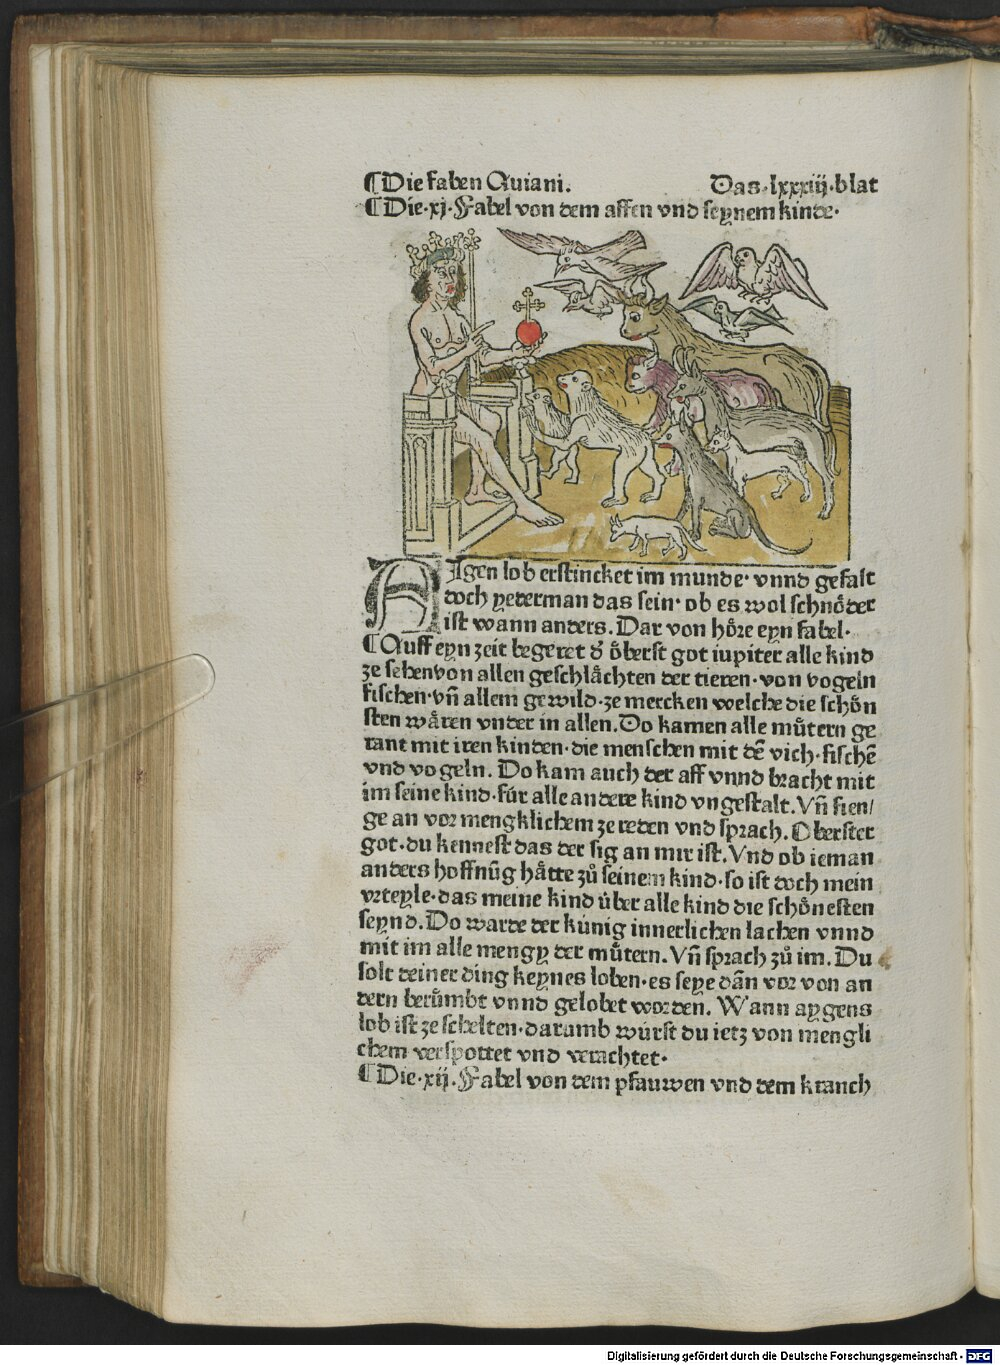 ¶Die faben Auiani. Das·lxxxiij·blat
¶Die·xj·Fabel von dem affen vnd seynem kinde·
AIgen lob erstincket im munde· vnnd gefalt
doch yederman das sein· ob es wol schnoͤder
ist wann anders. Dar von hoͤre eyn fabel·
¶Auff eyn zeit begeret d' oͤberst got iupiter alle kind
ze sehen von allen geschlaͤchten der tieren·von vogeln
fischen·vn̄ allem gewild·ze mercken welche die schoͤn
sten waͤren vnder in allen.Do kamen alle muͤtern ge
rant mit iren kinden·die menschen mit dē vich·fischē
vnd vogeln. Do kam auch der aff vnnd bracht mit
im seine kind·fúr alle andere kind vngestalt.Vn̄ fien/
ge an vor mengklichem ze reden vnd sprach. Oberster
got·du kennest das der sig an mir ist.Vnd ob ieman
anders hoffnūg haͤtte zuͦ seinem kind·so ist doch mein
vrteyle·das meine kind úber alle kind die schoͤnesten
seynd.Do warde der kúnig innerlichen lachen vnnd
mit im alle mengy der muͤtern.Vn̄ sprach zuͦ im. Du
solt deiner ding keynes loben·es seye dān vor von an
dern beruͤmbt vnnd gelobet worden. Wann aygens
lob ist ze schelten·darumb wúrst du ietz von mengli
chem verspottet vnd verachtet·
¶Die·xij.Fabel von dem pfauwen vnd dem kranch
Digitalisierung gefördert durch die Deutsche Forschungsgemeinschaft - DFG